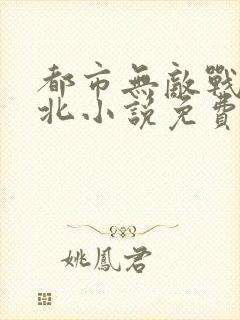 都市無敵戰
北小說免費
姚鳳君